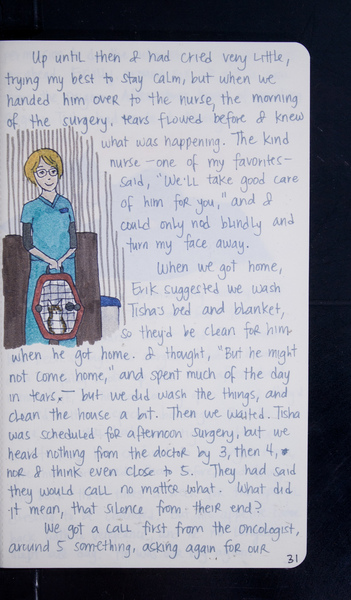 Up until then I had cried very little,
trying my best to stay calm, but when we
handed him over to the nurse, the morning
of the surgery, tears flowed before I knew
what was happening. The kind
nurse – one of my favorites –
said, "We'll take good care
of him for you," and I
could only nod blindly and
turn my face away.
When we got home,
Erik suggested we wash
Tisha's bed and blanket,
so they'd be clean for him
when he got home. I thought, "But he might
not come home," and spent much of the day
in tears – but we did wash the things, and
clean the house a bit. Then we waited. Tisha
was scheduled for afternoon surgery, but we
heard nothing from the doctor by 3, then 4,
nor I think even close to 5. They had said
they would call no matter what. What did
it mean, that silence from their end?
We got a call first from the oncologist,
around 5 something, asking again for our
31